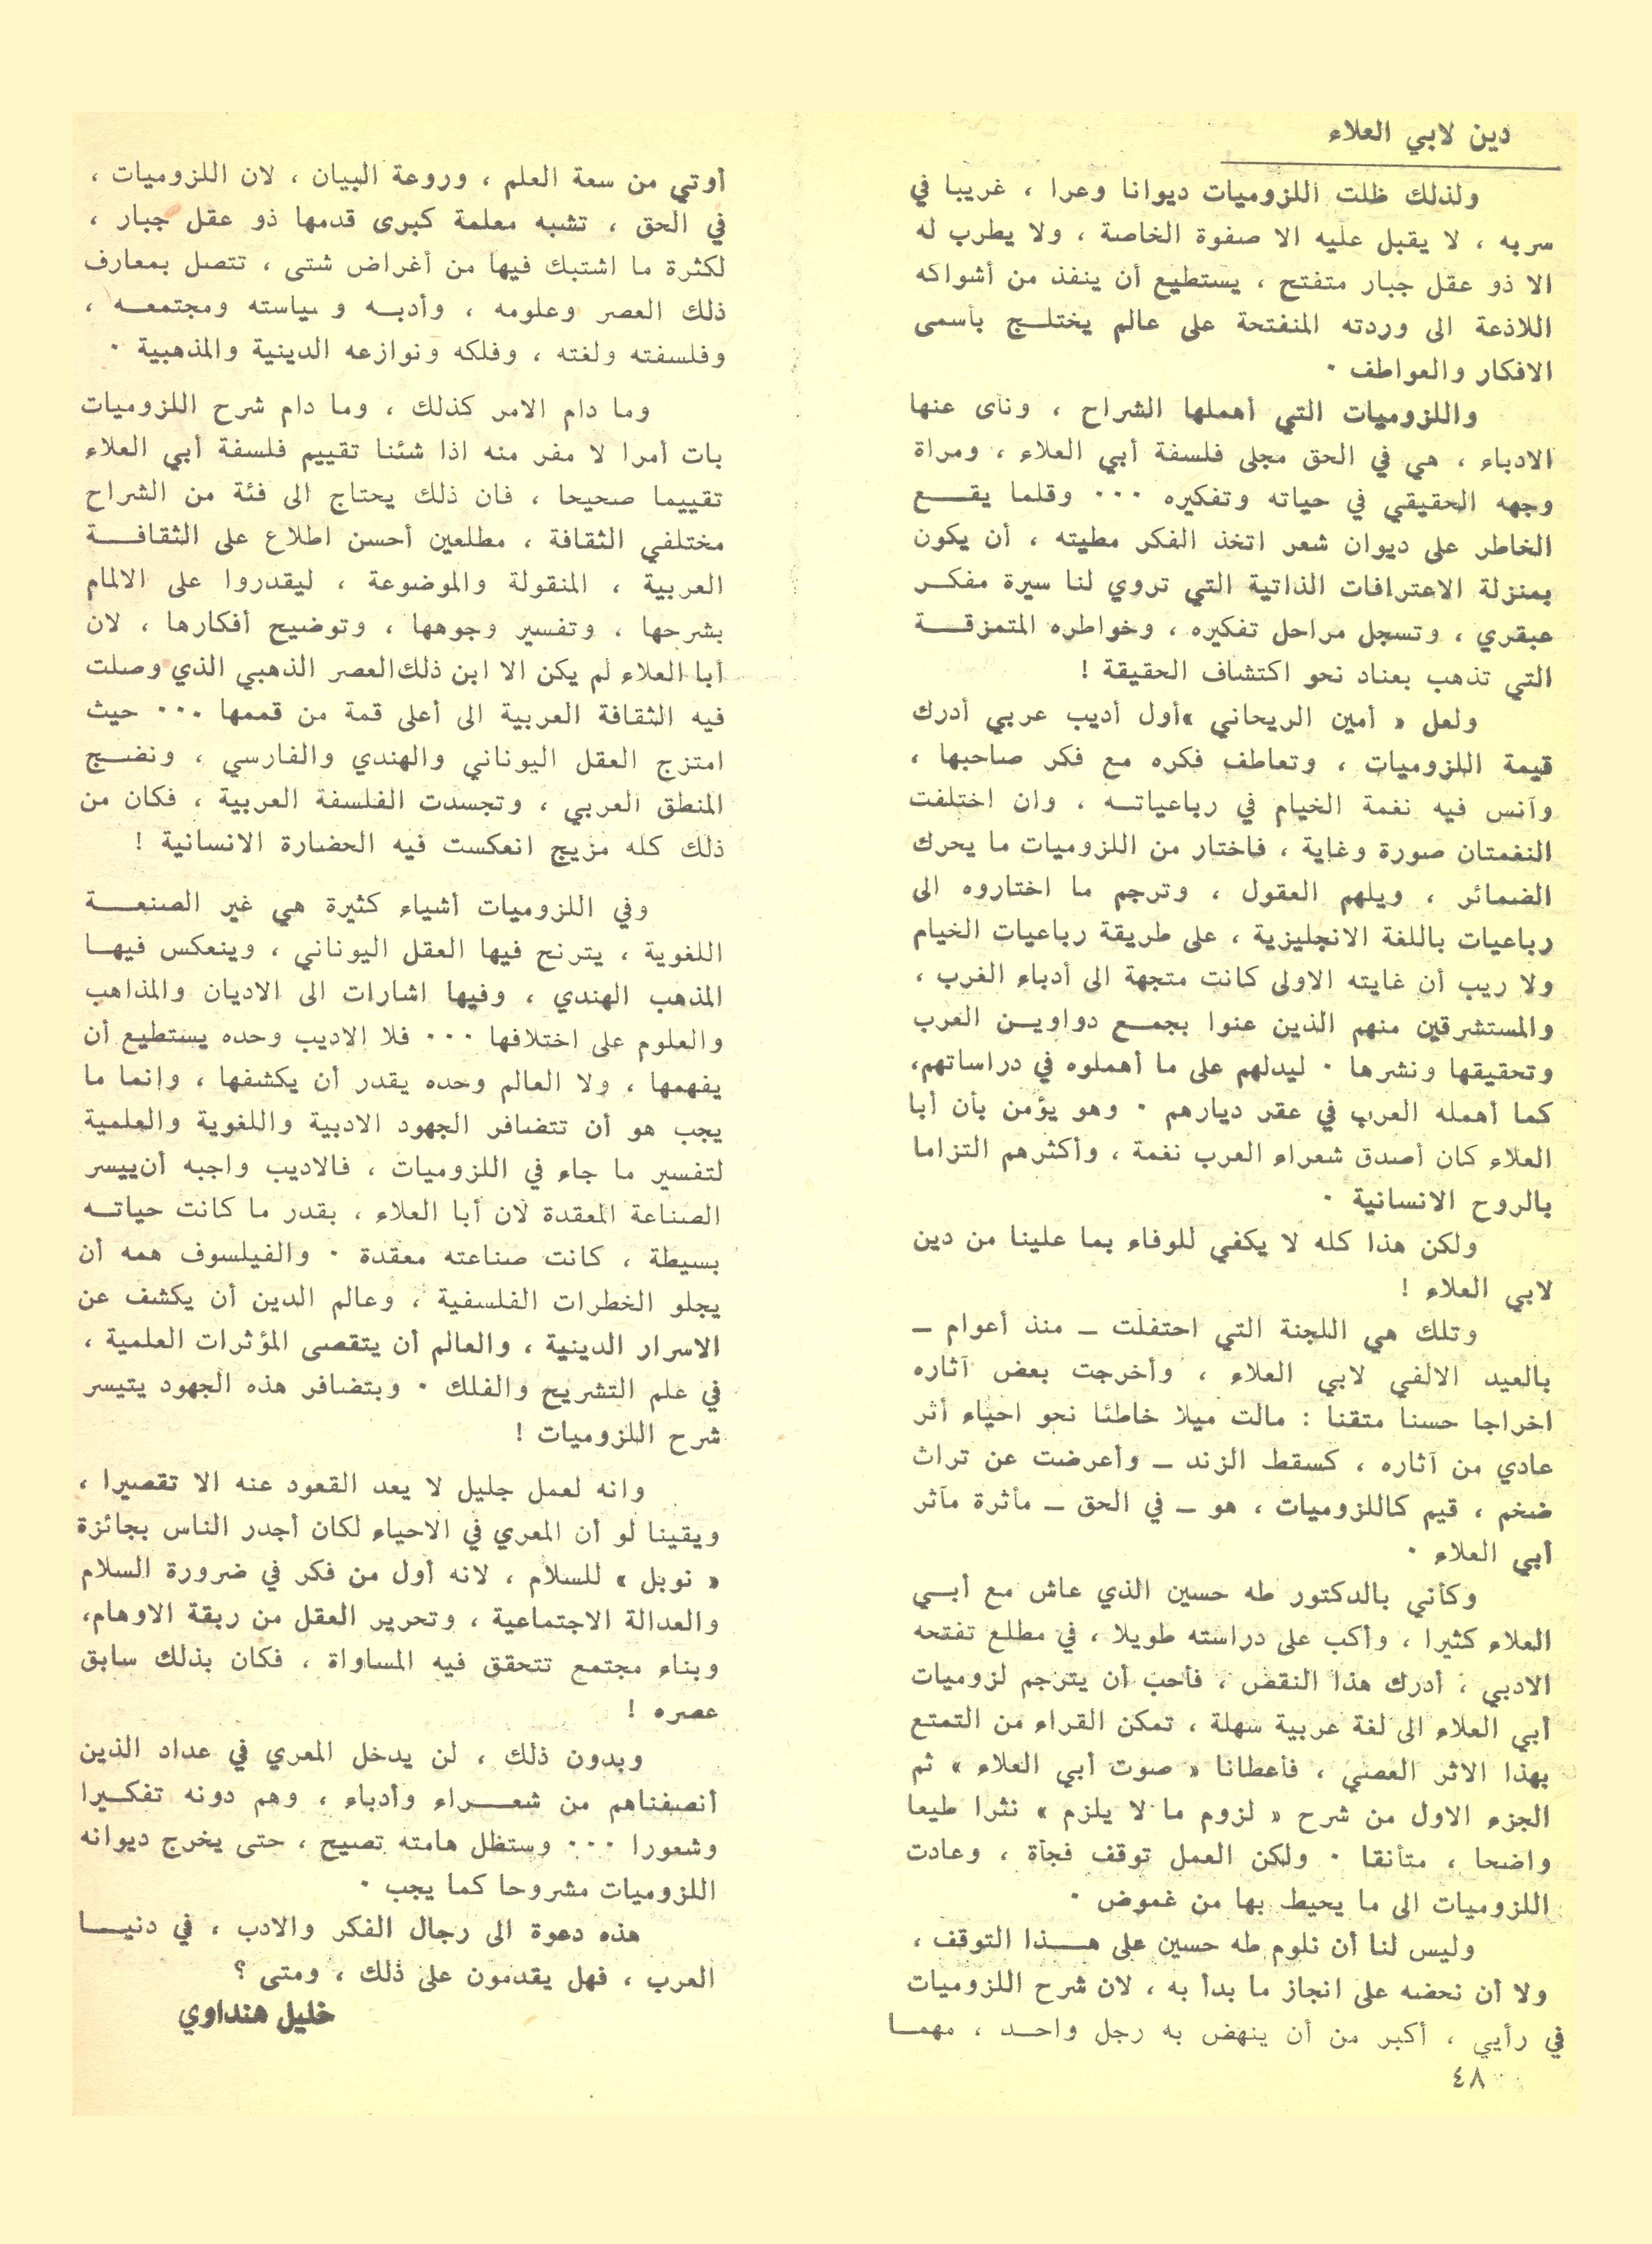 دين لابي العلاء
ولذلك ظلت اللزوميات ديوانا وعرا ، غريبا في
سربه ، لا يقبل عليه الا صفوة الخاصة ، ولا يطرب له
الا ذو عقل جبار متفتح ، يستطيع أن ينفذ من أشواكه
اللاذعة الى وردته المنفتحة على عالم يختلج بأسمى
الافكار والعواطف ٠
واللزوميات التي أهملها الشراح ، ونأى عنها
الادباء ، هي في الحق مجلى فلسفة أبي العلاء ، ومراة
وجهه الحقيقي في حياته وتفكيره ٠٠٠ وقلما يقع
الخاطر على ديوان شعر اتخذ الفكر مطيته ، أن يكون
بمنزلة الاعترافات الذاتية التي تروي لنا سيرة مفكر
عبقري ، وتسجل مراحل تفكيره ، وخواطره المتمزقة
التي تذهب بعناد نحو اكتشاف الحقيقة !
ولعل « أمين الريحاني »أول أديب عربي أدرك
قيمة اللزوميات ، وتعاطف فكره مع فكر صاحبها ،
وآنس فيه نغمة الخيام في رباعياته ، وان اختلفت
النغمتان صورة وغاية ، فاختار من اللزوميات ما يحرك
الضمائر ، ويلهم العقول ، وترجم ما اختاروه الى
رباعيات باللغة الانجليزية ، على طريقة رباعيات الخيام
ولا ريب أن غايته الاولى كانت متجهة الى أدباء الغرب ،
والمستشرقين منهم الذين عنوا بجمع دواوين العرب
وتحقيقها ونشرها ٠ ليدلهم على ما أهملوه في دراساتهم،
كما أهمله العرب في عقر ديارهم ٠ وهو يؤمن بأن أبا
العلاء كان أصدق شعراء العرب نغمة ، وأكثرهم التزاما
بالروح الانسانية ٠
ولكن هذا كله لا يكفي للوفاء بما علينا من دين
لابي العلاء !
وتلك هي اللجنة التي احتفلت ــ منذ أعوام ــ
بالعيد الالفي لابي العلاء ، وأخرجت بعض آثاره
اخراجا حسنا متقنا : مالت ميلا خاطئا نحو احياء أثر
عادي من آثاره ، كسقط الزند ــ وأعرضت عن تراث
ضخم ، قيم كاللزوميات ، هو ــ في الحق ــ مأثرة مآثر
أبي العلاء ٠
وكأني بالدكتور طه حسين الذي عاش مع أبي
العلاء كثيرا ، وأكب على دراسته طويلا ، في مطلع تفتحه
الادبي ، أدرك هذا النقص ، فأحب أن يترجم لزوميات
أبي العلاء الى لغة عربية سهلة ، تمكن القراء من التمتع
بهذا الاثر العصي ، فأعطانا « صوت أبي العلاء » ثم
الجزء الاول من شرح « لزوم ما لا يلزم » نثرا طيعا
واضحا ، متأنقا ٠ ولكن العمل توقف فجأة ، وعادت
اللزوميات الى ما يحيط بها من غموض ٠
وليس لنا أن نلوم طه حسين على هذا التوقف ،
ولا أن نحضه على انجاز ما بدأ به ، لان شرح اللزوميات
في رأيي ، أكبر من أن ينهض به رجل واحد ، مهما
٤٨
أوتي من سعة العلم ، وروعة البيان ، لان اللزوميات ،
في الحق ، تشبه معلمة كبرى قدمها ذو عقل جبار ،
لكثرة ما اشتبك فيها من أغراض شتى ، تتصل بمعارف
ذلك العصر وعلومه ، وأدبه وسياسته ومجتمعه ،
وفلسفته ولغته ، وفلكه ونوازعه الدينية والمذهبية ٠
وما دام الامر كذلك ، وما دام شرح اللزوميات
بات أمرا لا مفر منه اذا شئنا تقييم فلسفة أبي العلاء
تقييما صحيحا ، فان ذلك يحتاج الى فئة من الشراح
مختلفي الثقافة ، مطلعين أحسن اطلاع على الثقافة
العربية ، المنقولة والموضوعة ، ليقدروا على الالمام
بشرحها ، وتفسير وجوهها ، وتوضيح أفكارها ، لان
أبا العلاء لم يكن الا ابن ذلك العصر الذهبي الذي وصلت
فيه الثقافة العربية الى أعلى قمة من قممها ٠٠٠ حيث
امتزج العقل اليوناني والهندي والفارسي ، ونضج
المنطق العربي ، وتجسدت الفلسفة العربية ، فكان من
ذلك كله مزيج انعكست فيه الحضارة الانسانية !
وفي اللزوميات أشياء كثيرة هي غير الصنعة
اللغوية ، يترنح فيها العقل اليوناني ، وينعكس فيها
المذهب الهندي ، وفيها اشارات الى الاديان والمذاهب
والعلوم على اختلافها ٠٠٠ فلا الاديب وحده يستطيع أن
يفهمها ، ولا العالم وحده يقدر أن يكشفها ، وانما ما
يجب هو أن تتضافر الجهود الادبية واللغوية والعلمية
لتفسير ما جاء في اللزوميات ، فالاديب واجبه أن ييسر
الصناعة المعقدة لان أبا العلاء ، بقدر ما كانت حياته
بسيطة ، كانت صناعته معقدة ٠ والفيلسوف همه أن
يجلو الخطرات الفلسفية ، وعالم الدين أن يكشف عن
الاسرار الدينية ، والعالم أن يتقصى المؤثرات العلمية ،
في علم التشريح والفلك ٠ وبتضافر هذه الجهود يتيسر
شرح اللزوميات !
وانه لعمل جليل لا يعد القعود عنه الا تقصيرا ،
ويقينا لو أن المعري في الاحياء لكان أجدر الناس بجائزة
« نوبل » للسلام ، لانه أول من فكر في ضرورة السلام
والعدالة الاجتماعية ، وتحرير العقل من ربقة الاوهام،
وبناء مجتمع تتحقق فيه المساواة ، فكان بذلك سابق
عصره !
وبدون ذلك ، لن يدخل المعري في عداد الذين
أنصفناهم من شعراء وأدباء ، وهم دونه تفكيرا
وشعورا ٠٠٠ وستظل هامته تصيح ، حتى يخرج ديوانه
اللزوميات مشروحا كما يجب ٠
هذه دعوة الى رجال الفكر والادب ، في دنيا
العرب ، فهل يقدمون على ذلك ، ومتى ؟
خليل هنداوي